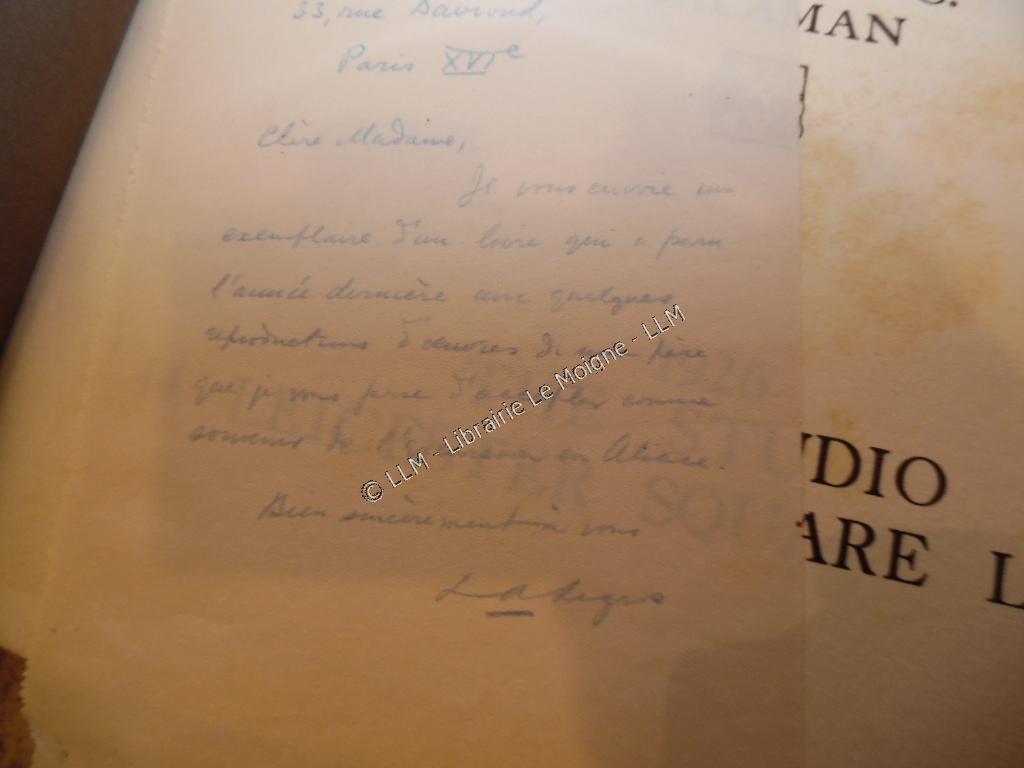 33, rue Davioud,
Paris XVIe
Chère Madame,
Je vous envoie un
exemplaire d'un livre qui a paru
l'année dernière avec quelques
reproductions d'œuvres de mon père
que je vous prie d'accepter comme
souvenir de en Alsace.
Bien sincèrement à vous
L A Legros
MAN
1926
STUDIO
SQUARE L
© LLM - Librairie Le Moigne - LLM